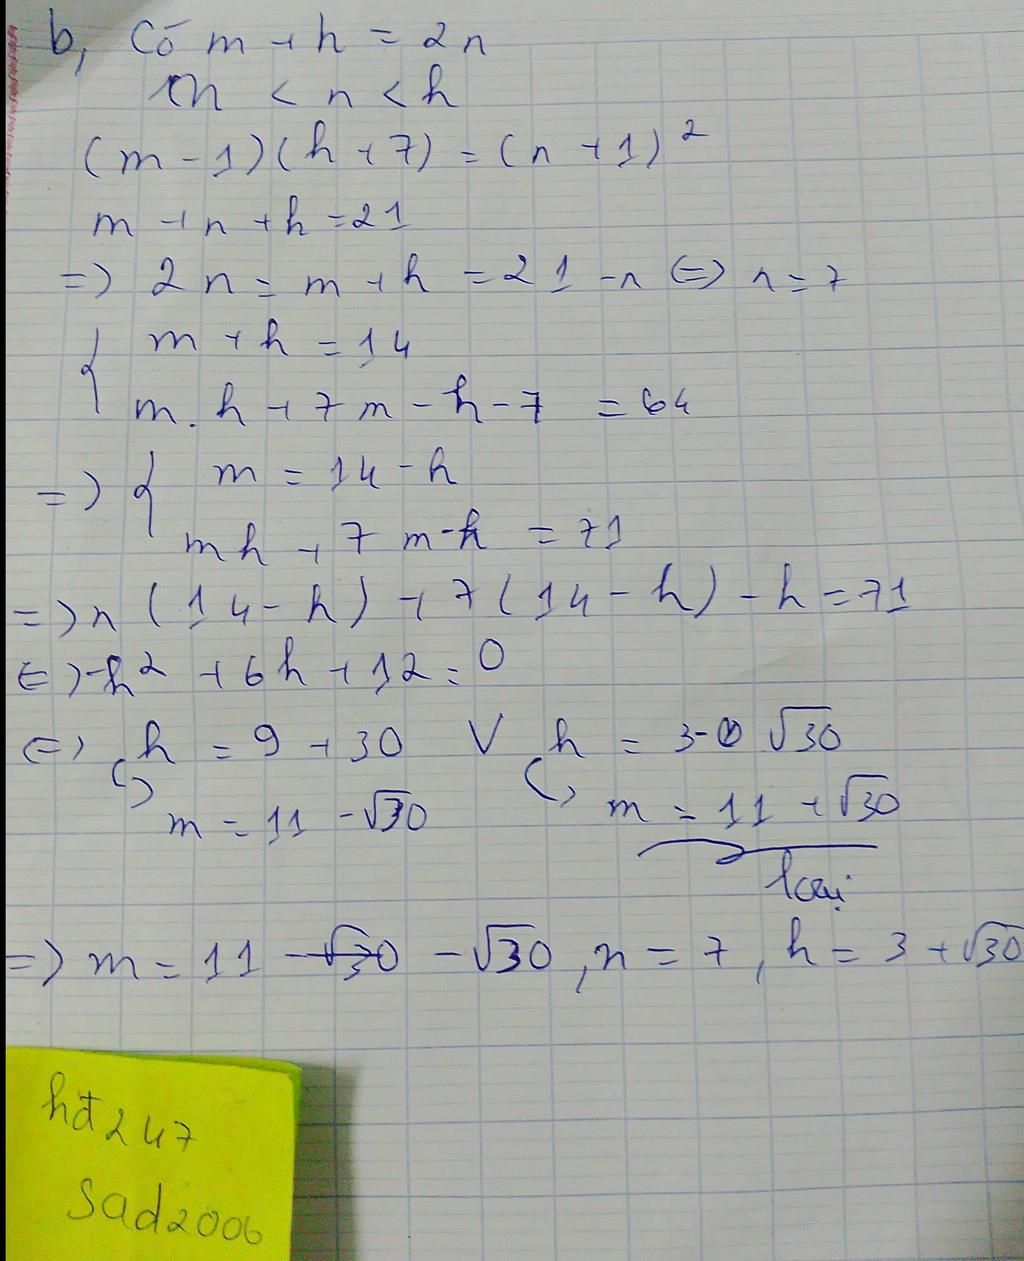 b, Có m + h = 2n
m < n < h
(m - 1)(h + 7) = (n + 1)²
m + n + h = 21
=> 2n = m + h = 21 - n <=> n = 7
{ m + h = 14
m. h + 7m - h - 7 = 64
=> { m = 14 - h
mh + 7m - h = 71
=> n(14 - h) + 7(14 - h) - h = 71
<=> -h² + 6h + 12 = 0
<=> h = 9 + 30 V h = 3 - √30
m = 11 - √30 m = 11 + √30
loại
=> m = 11 - √30 - √30, n = 7, h = 3 + √30
hđ247
Sad2006